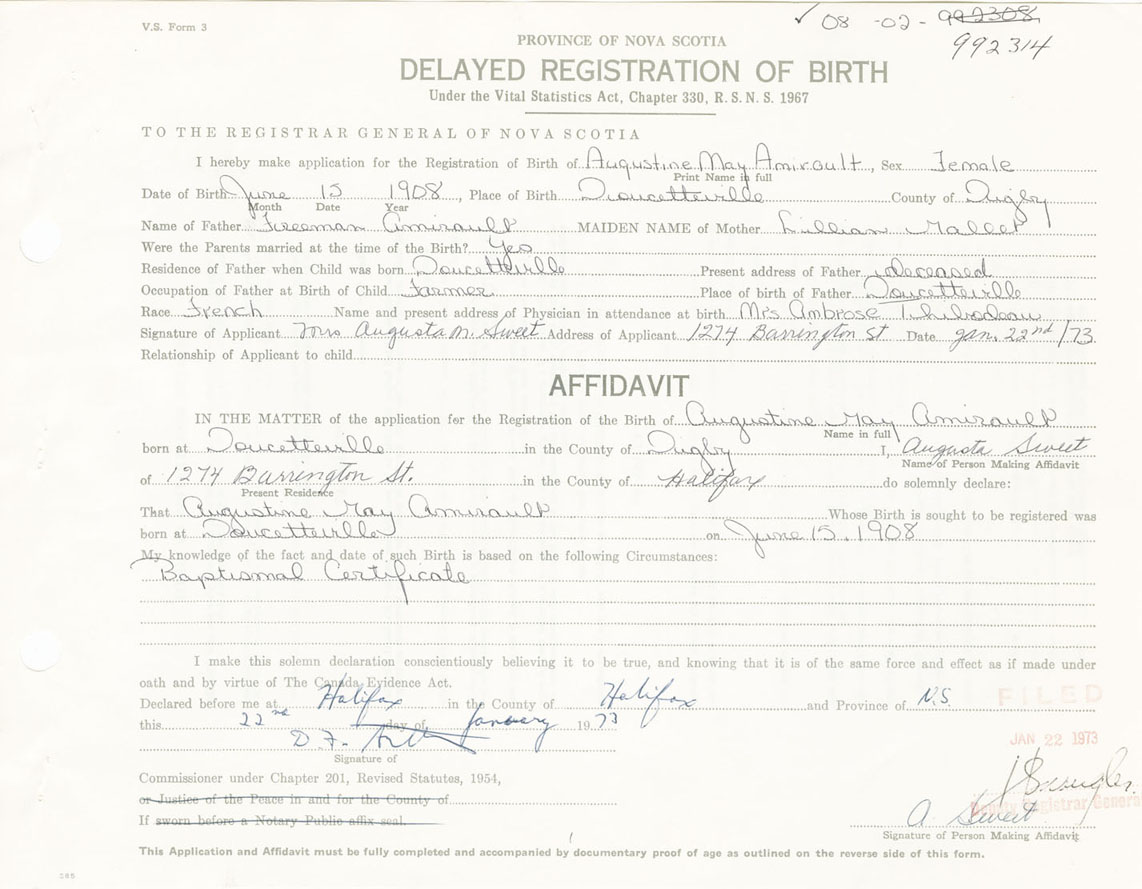 V.S. Form 3
✓ 08 -02- 992308
992314
PROVINCE OF NOVA SCOTIA
DELAYED REGISTRATION OF BIRTH
Under the Vital Statistics Act, Chapter 330, R. S. N. S. 1967
TO THE REGISTRAR GENERAL OF NOVA SCOTIA
I hereby make application for the Registration of Birth of Augustine May Amirault, Sex Female
Print Name in full
Date of Birth June 15 1908, Place of Birth Doucetteville County of Digby
Month Date Year
Name of Father Freeman Amirault MAIDEN NAME of Mother Lillian Mallet
Were the Parents married at the time of the Birth? Yes
Residence of Father when Child was born Doucetteville Present address of Father deceased
Occupation of Father at Birth of Child Farmer Place of birth of Father Doucetteville
Race French Name and present address of Physician in attendance at birth Mrs Ambrose Thibodeau
Signature of Applicant Mrs Augusta M. Sweet Address of Applicant 1274 Barrington St Date Jan. 22nd /73
Relationship of Applicant to child
AFFIDAVIT
IN THE MATTER of the application for the Registration of the Birth of Augustine May Amirault
Name in full
born at Doucetteville in the County of Digby I, Augusta Sweet
Name of Person Making Affidavit
of 1274 Barrington St. in the County of Halifax do solemnly declare:
Present Residence
That Augustine May Amirault Whose Birth is sought to be registered was
born at Doucetteville on June 15, 1908
My knowledge of the fact and date of such Birth is based on the following Circumstances:
Baptismal Certificate
I make this solemn declaration conscientiously believing it to be true, and knowing that it is of the same force and effect as if made under
oath and by virtue of The Canada Evidence Act.
Declared before me at Halifax in the County of Halifax and Province of N.S.
FILED
this 22nd day of January 1973
JAN 22 1973
D. F.
Signature of
Commissioner under Chapter 201, Revised Statutes, 1954,
or Justice of the Peace in and for the County of
Deputy Registrar General
If sworn before a Notary Public affix seal.
A. Sweet
Signature of Person Making Affidavit
This Application and Affidavit must be fully completed and accompanied by documentary proof of age as outlined on the reverse side of this form.